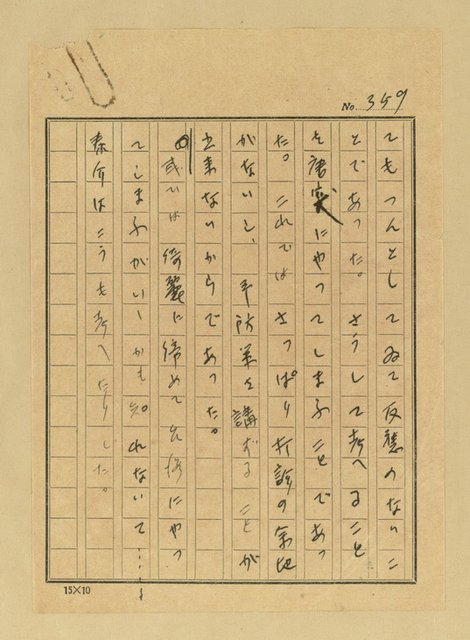 No. 359
てもつんとしてゐて反應のないこ
とであった。さうして考へること
を唐突にやってしまふことであっ
た。これではさっぱり打診の余地
がないし、予防策を講ずることが
出来ないからであった。
或ひは綺麗に諦めて先方にやっ
てしまふがいゝかも知れないて……
泰介はこうも考へたりした。
15×10